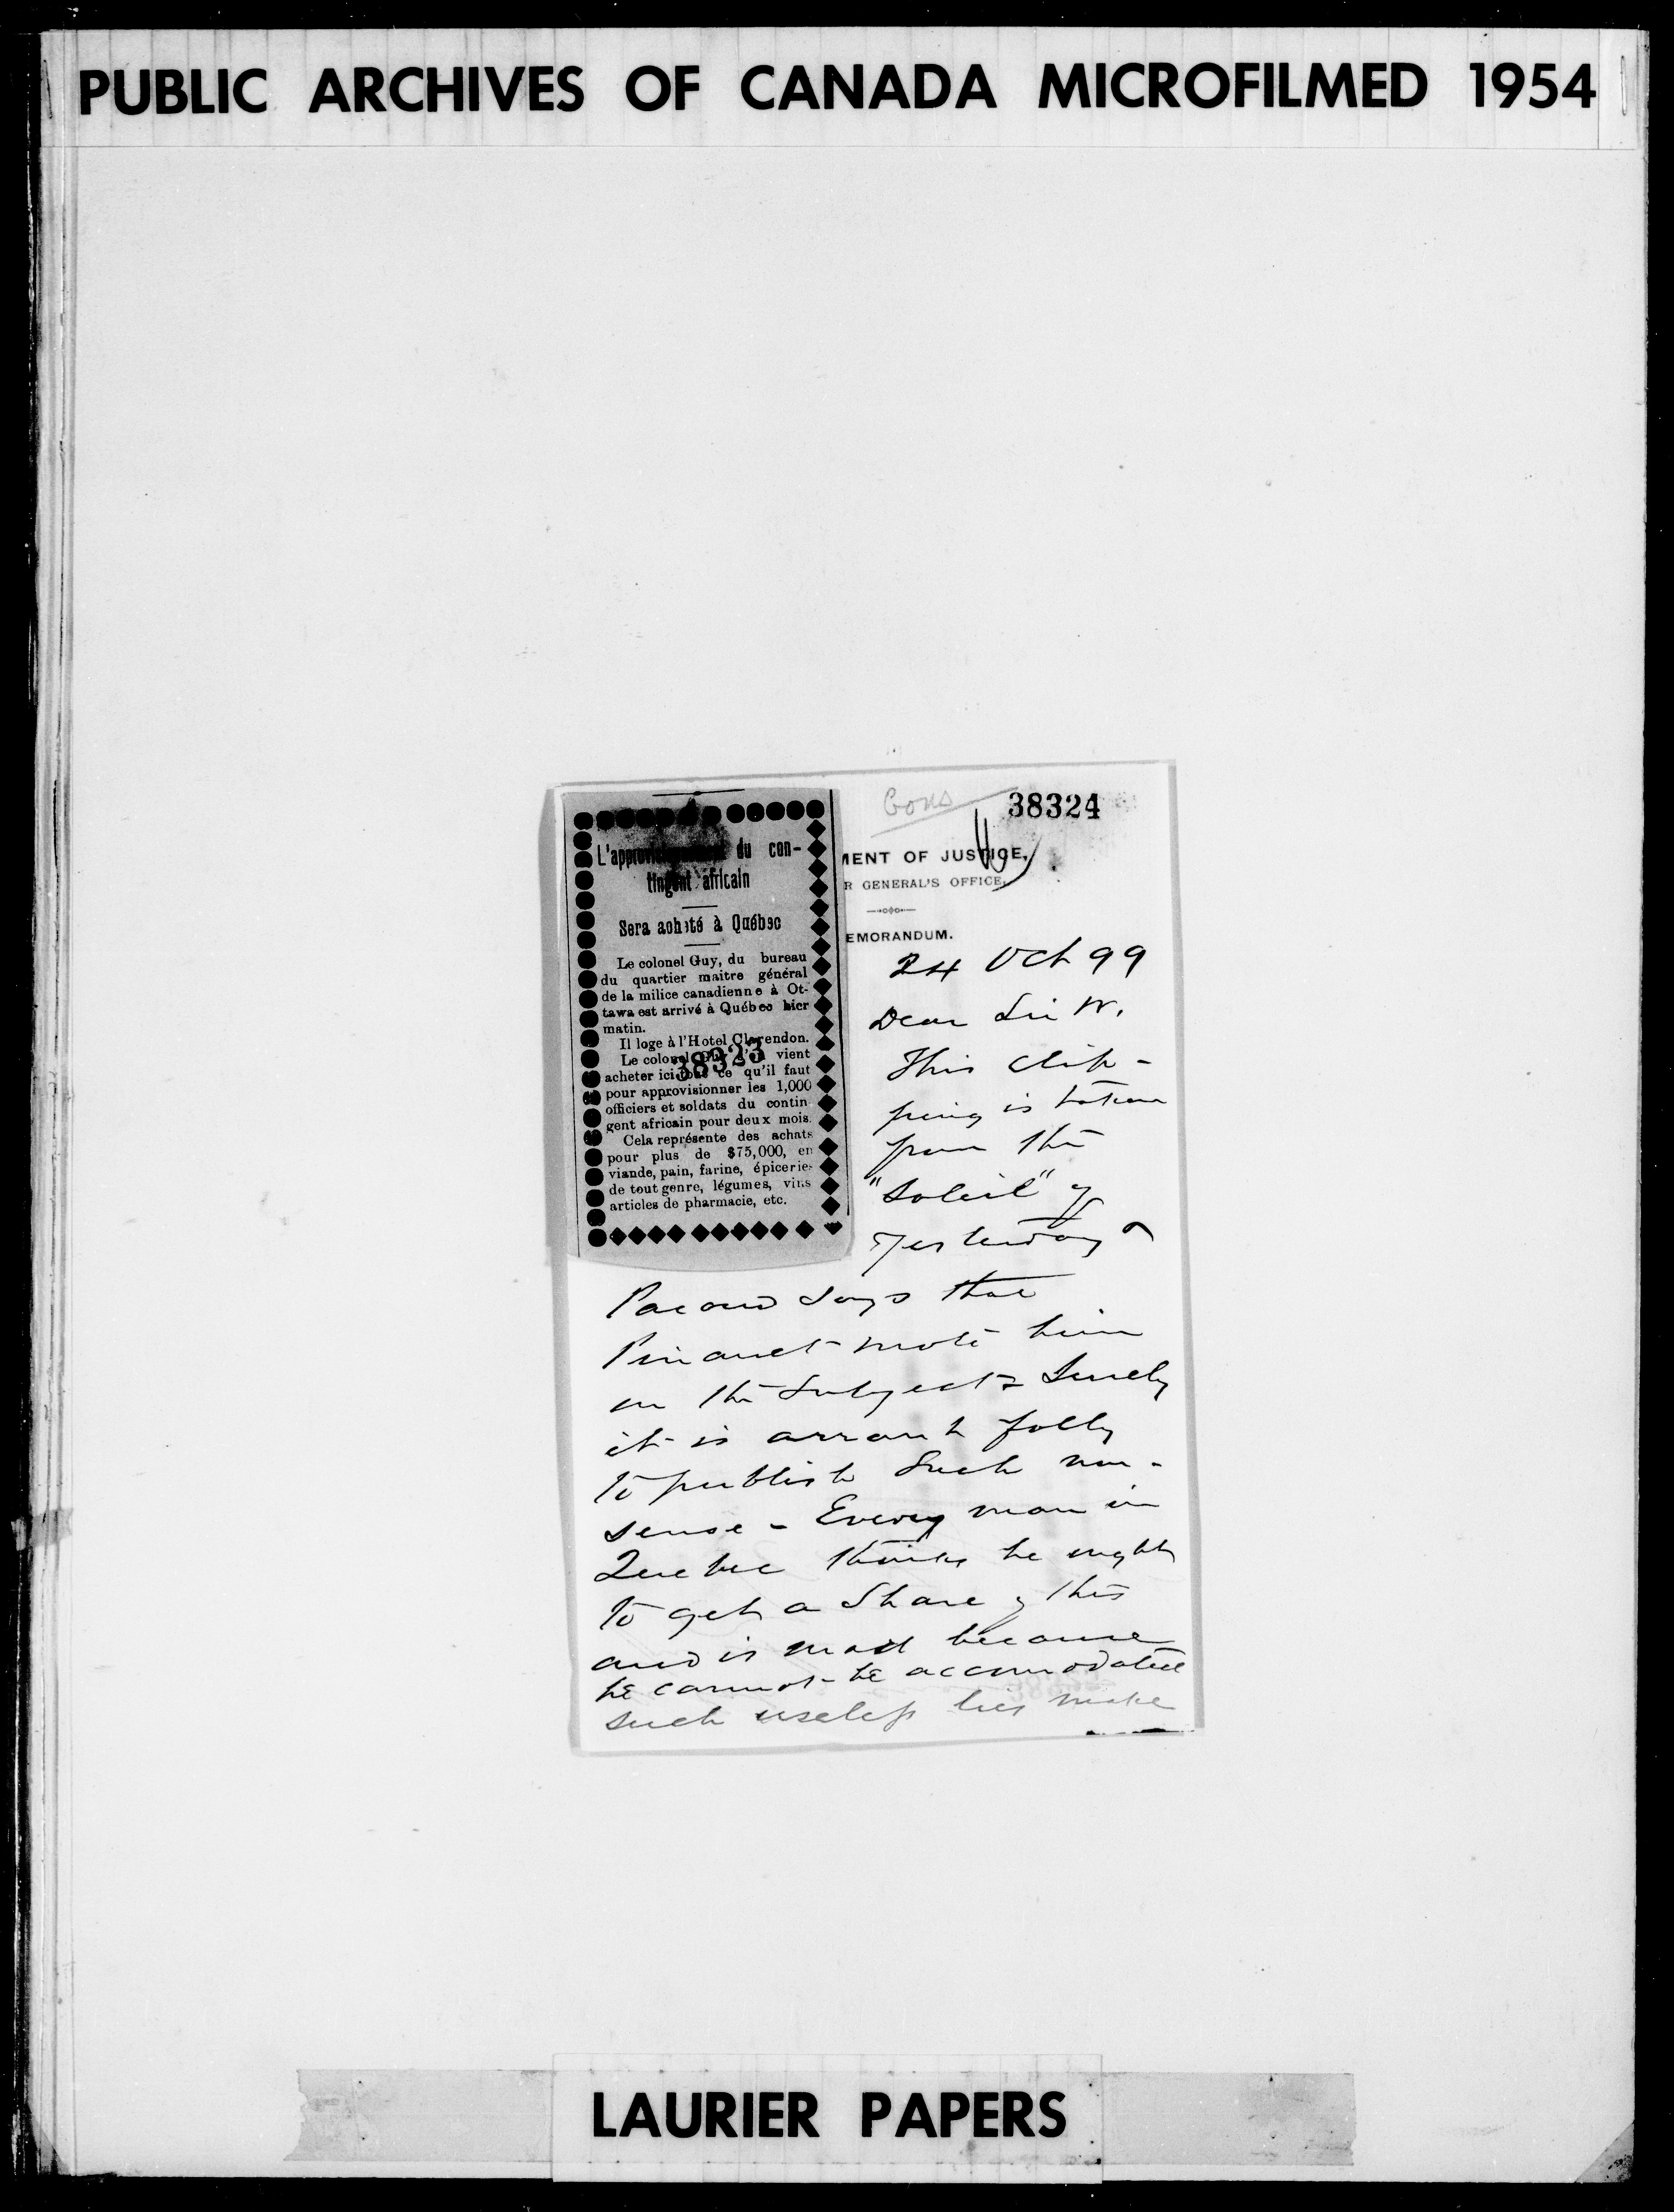 PUBLIC ARCHIVES OF CANADA MICROFILMED 1954
L'approvisionnement du con-
tingent africain
Sera acheté à Québec
Le colonel Guy, du bureau
du quartier maitre général
de la milice canadienne à Ot-
tawa est arrivé à Québec hier
matin.
Il loge à l'Hotel Clarendon.
Le colonel Guy vient
acheter ici tout ce qu'il faut
pour approvisionner les 1,000
officiers et soldats du contin
gent africain pour deux mois.
Cela représente des achats
pour plus de $75,000, en
viande, pain, farine, épiceries
de tout genre, légumes, vins
articles de pharmacie, etc.
38323
Cons
38324
MENT OF JUSTICE,
R GENERAL'S OFFICE,
EMORANDUM.
24 Oct 99
Dear Sir W.
This clip-
ping is taken
from the
"Soleil" of
yesterday
Pacaud says that
Pinault wrote him
on the subject - Surely
it is arrant folly
to publish such non-
sense - Every man in
Quebec thinks he ought
to get a share of this
and is mad because
he cannot be accommodated
such useless lies make
LAURIER PAPERS